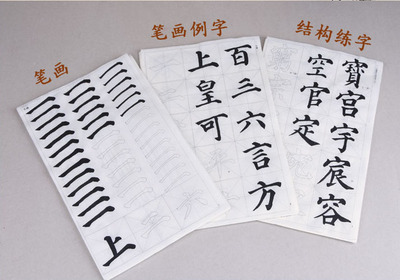 笔画
上
笔画例字
百三六言方
上皇可
结构练字
寶宫宇宸容
空官定